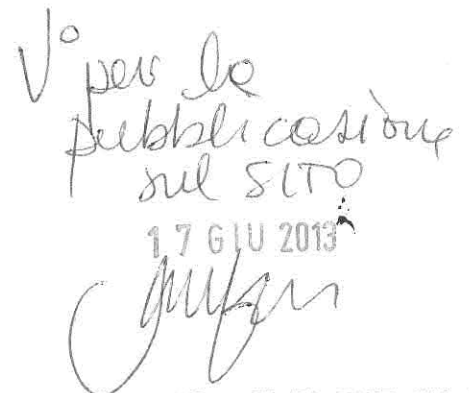 V° per la
pubblicazione
sul SITO
17 GIU 2013